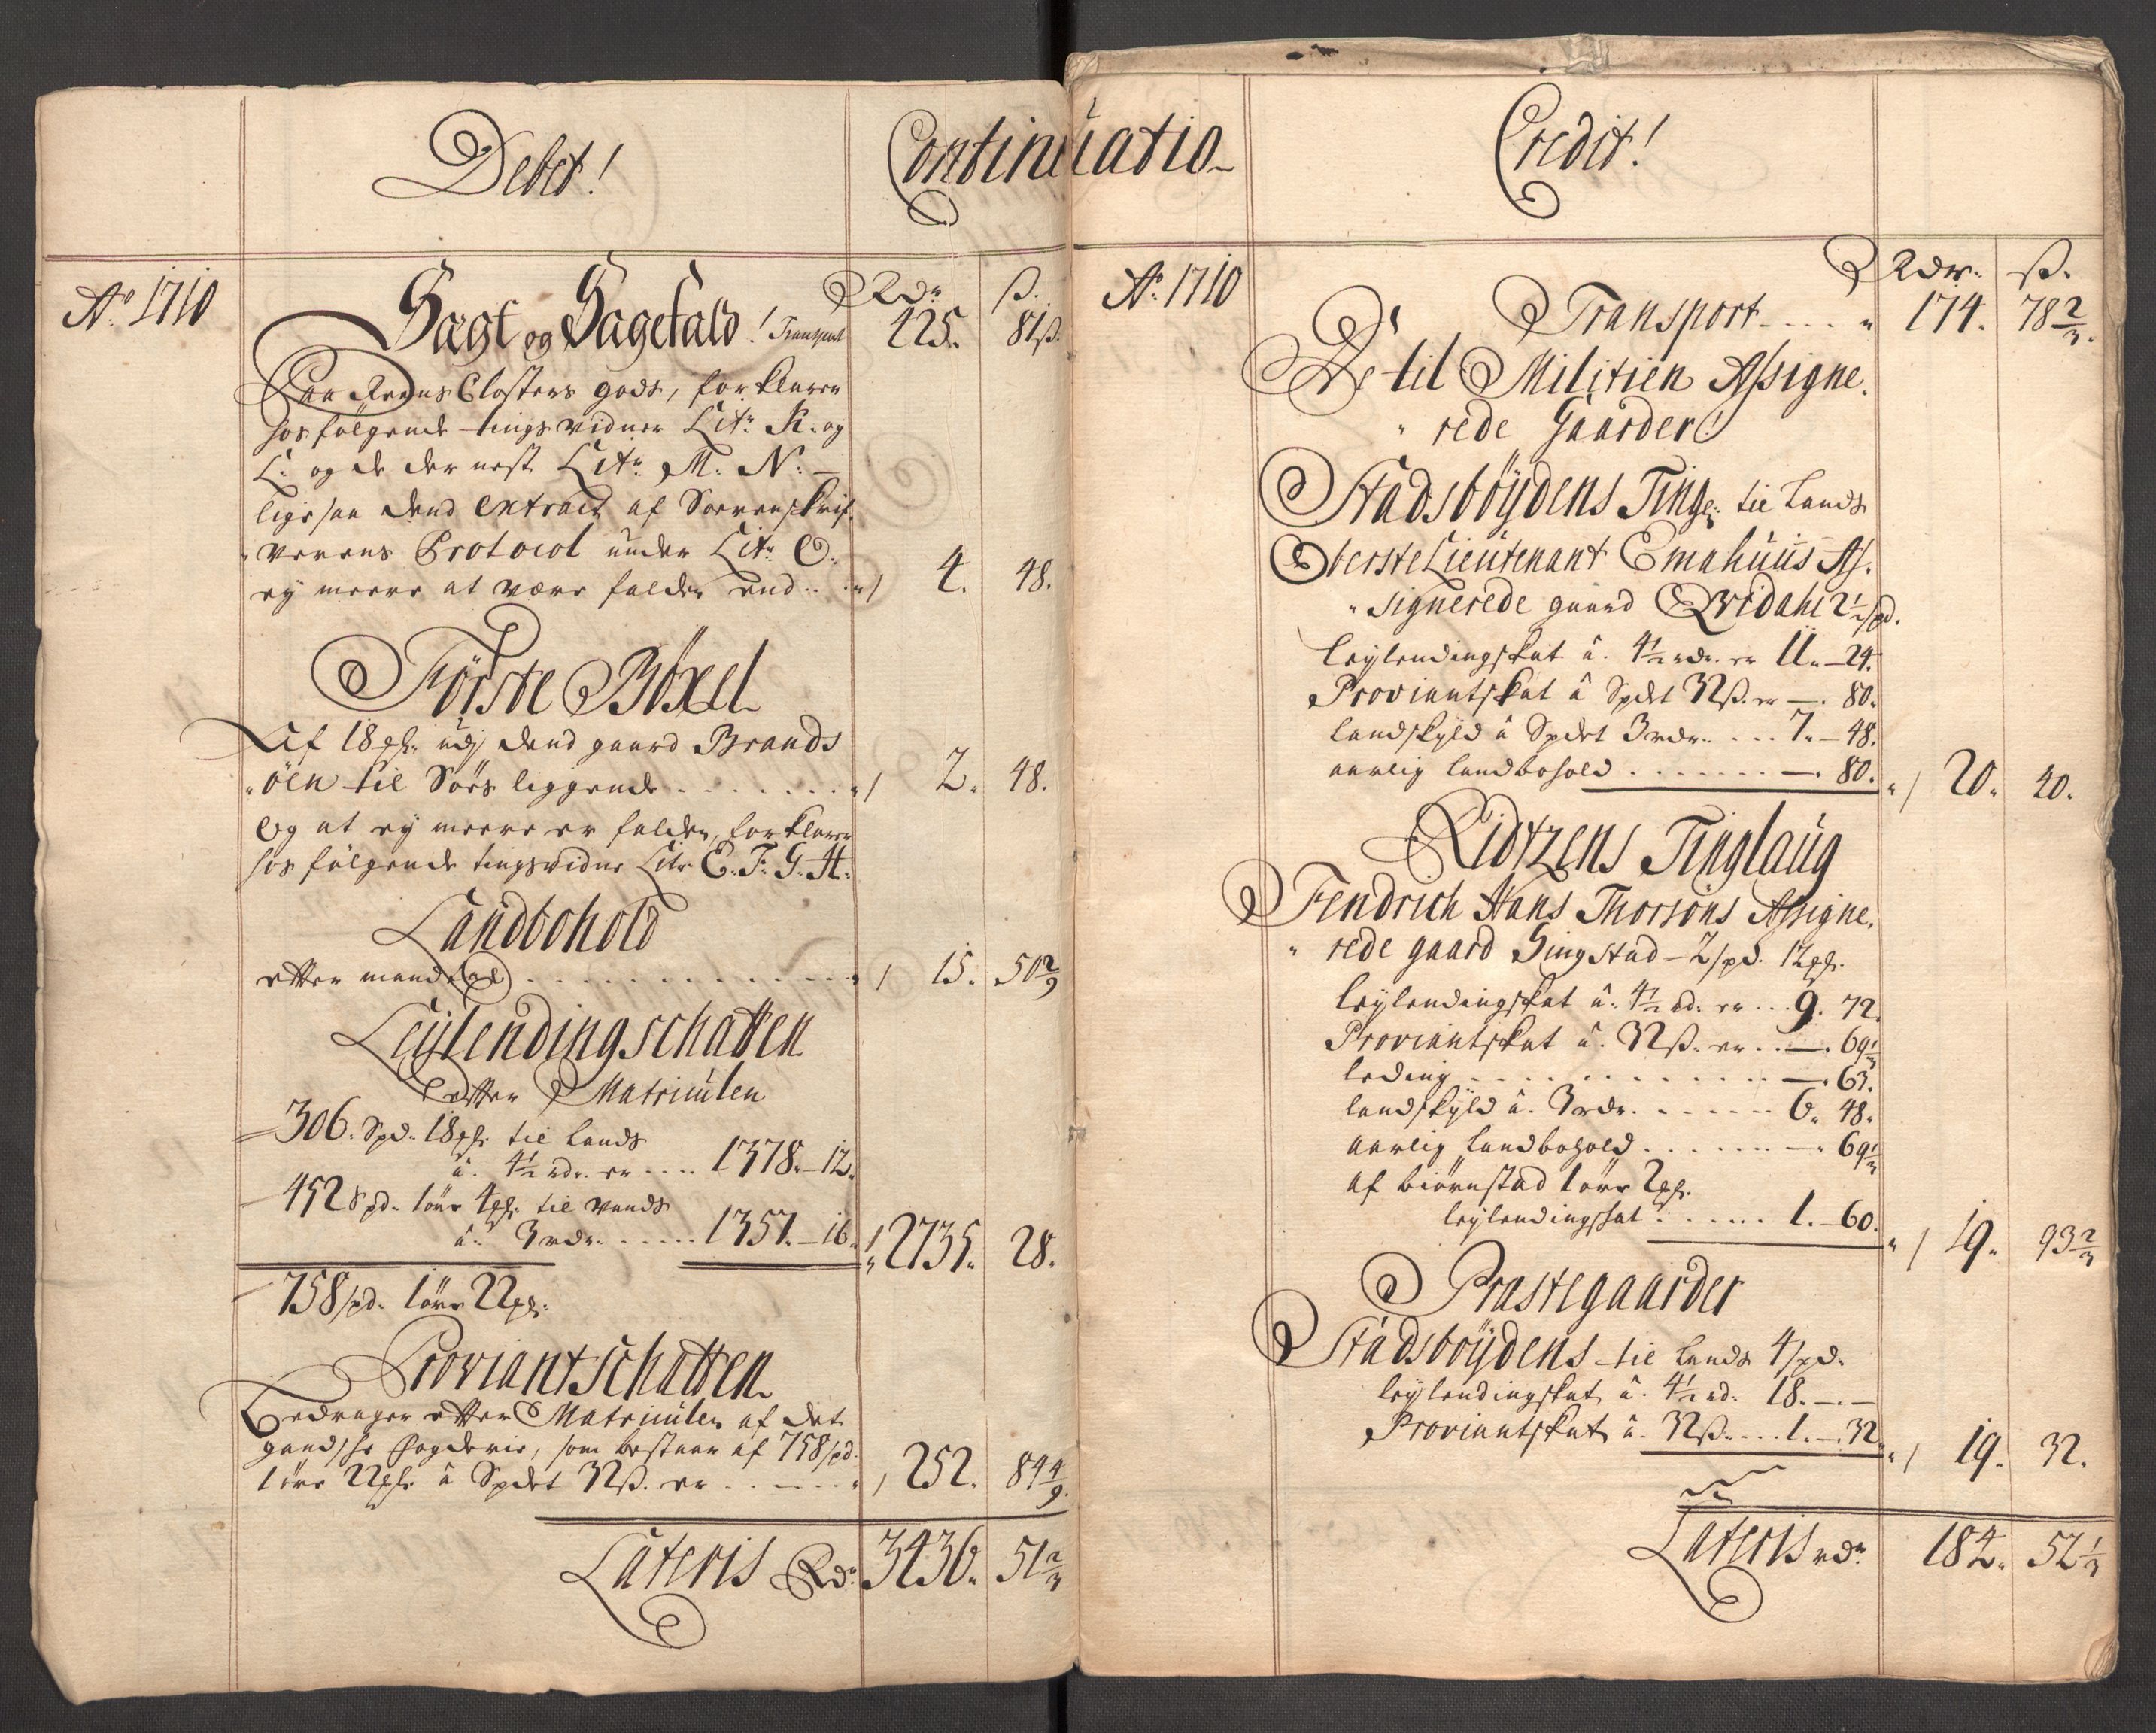 Debet!
Continuatio
Ao 1710
Rdr ß.
Sagt og Sagefald! Transport 425. 81ß.
Paa Reens Closters gods, forklarer
hosfølgende tingsvidner Litr: K. og
L: og de der nest Litr M: N:
ligesaa dend extract af Sorenskrif
verens Protocol under Litr O:
ey meere at være falden end .. 4. 48.
Förste Böxel
Af 18 ₰ udj dend gaard Brands
öen til Søes liggende . . . . . . . 2. 48.
Og at ey meere er falden, forklarer
hosfølgende tingsvidne Litr E. F: G. H:
Landbohold
efter mandtal . . . . . . . . . . . 15. 50 2/9
Leÿlendingschatten
efter Matriculen
306. Spd. 18 ₰ til Lands
à. 4 1/2 rd. er .... 1378. 12.
452 Spd. 1 ör 4 ₰ til vands
à. 3 rdr. . . . . . 1357. 16. 2735. 28.
758 spd. 1 ör 22 ₰.
Proviantschatten
Bedrager efter Matriculen af det
gandske fogderie, som bestaar af 758 spd.
1 ör 22 ₰ à Spdet 32ß. er . . . . . 252. 84 4/9
Lateris Rdr 3436. 51 2/3
Credit!
Ao. 1710
Rdr. ß.
Transport . . . . 174. 78 2/3.
De til Militien Assigne
rede Gaarder!
Stadsböÿdens Ting: til Lands
Oberste Lieutenant Emahuus As
signerede gaard Qvidahl 2 1/2 spd.
Leylendingskat à. 4 1/2 rdr. er 11. 24.
Proviantskat à Spdet 32ß. er —. 80.
landskyld à Spdet 3 rdr. . . . 7. 48.
aarlig landbohold . . . . . . . —. 80. 20. 40.
Ridtzens Tinglaug
Fendrich Hans Thorsöns Assigne
rede gaard Singstad - 2 spd. 12 ₰.
leylendingskat à. 4 1/2 rd. er ... 9. 72.
Proviantskat à. 32ß. er . . —. 69 1/3
leding . . . . . . . . . . . . . . —. 63.
landskyld à. 3 rdr. . . . . . . . 6. 48.
aarlig landbohold . . . . . . . —. 69 1/3
af biörnstad 1 ör 2 ₰.
leylendingskat . . . . . . 1. 60. 19. 93 2/3
Prastegaarder
Stadsböÿdens til Lands 4 spd.
leylendingskat à. 4 1/2 rd. 18. —
Proviantskat à. 32ß. . . . 1. 32. 19. 32.
Lateris rdr 184. 52 1/3